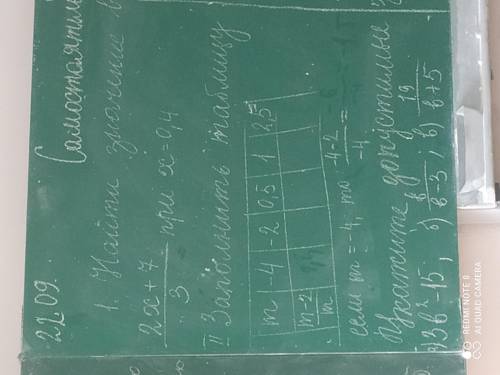 22.09. Самостоятельн
1. Найти значение в
2x + 7 / 3 при x = 0,4
II Заполнить таблицу
m | -4 | -2 | 0,5 | 1 | 2,5
m-2 / m
если m = -4, то -4-2 / -4 = -6 / -4 = 1,5
Укажите допустимые
а) 3b² - 15; б) 8 / b-3; в) 19 / b+5
REDMI NOTE 8
AI QUAD CAMERA